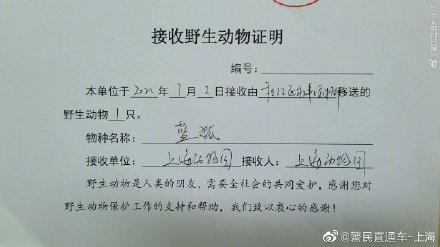 接收野生动物证明
编号:
本单位于2022年3月2日接收由移送的
野生动物1只。
物种名称: 蓝狐
接收单位: 上海动物园 接收人: 上海动物园
野生动物是人类的朋友,需要全社会的共同爱护,感谢您对
野生动物保护工作的支持和帮助,我们致以衷心的感谢!
@警民直通车-上海